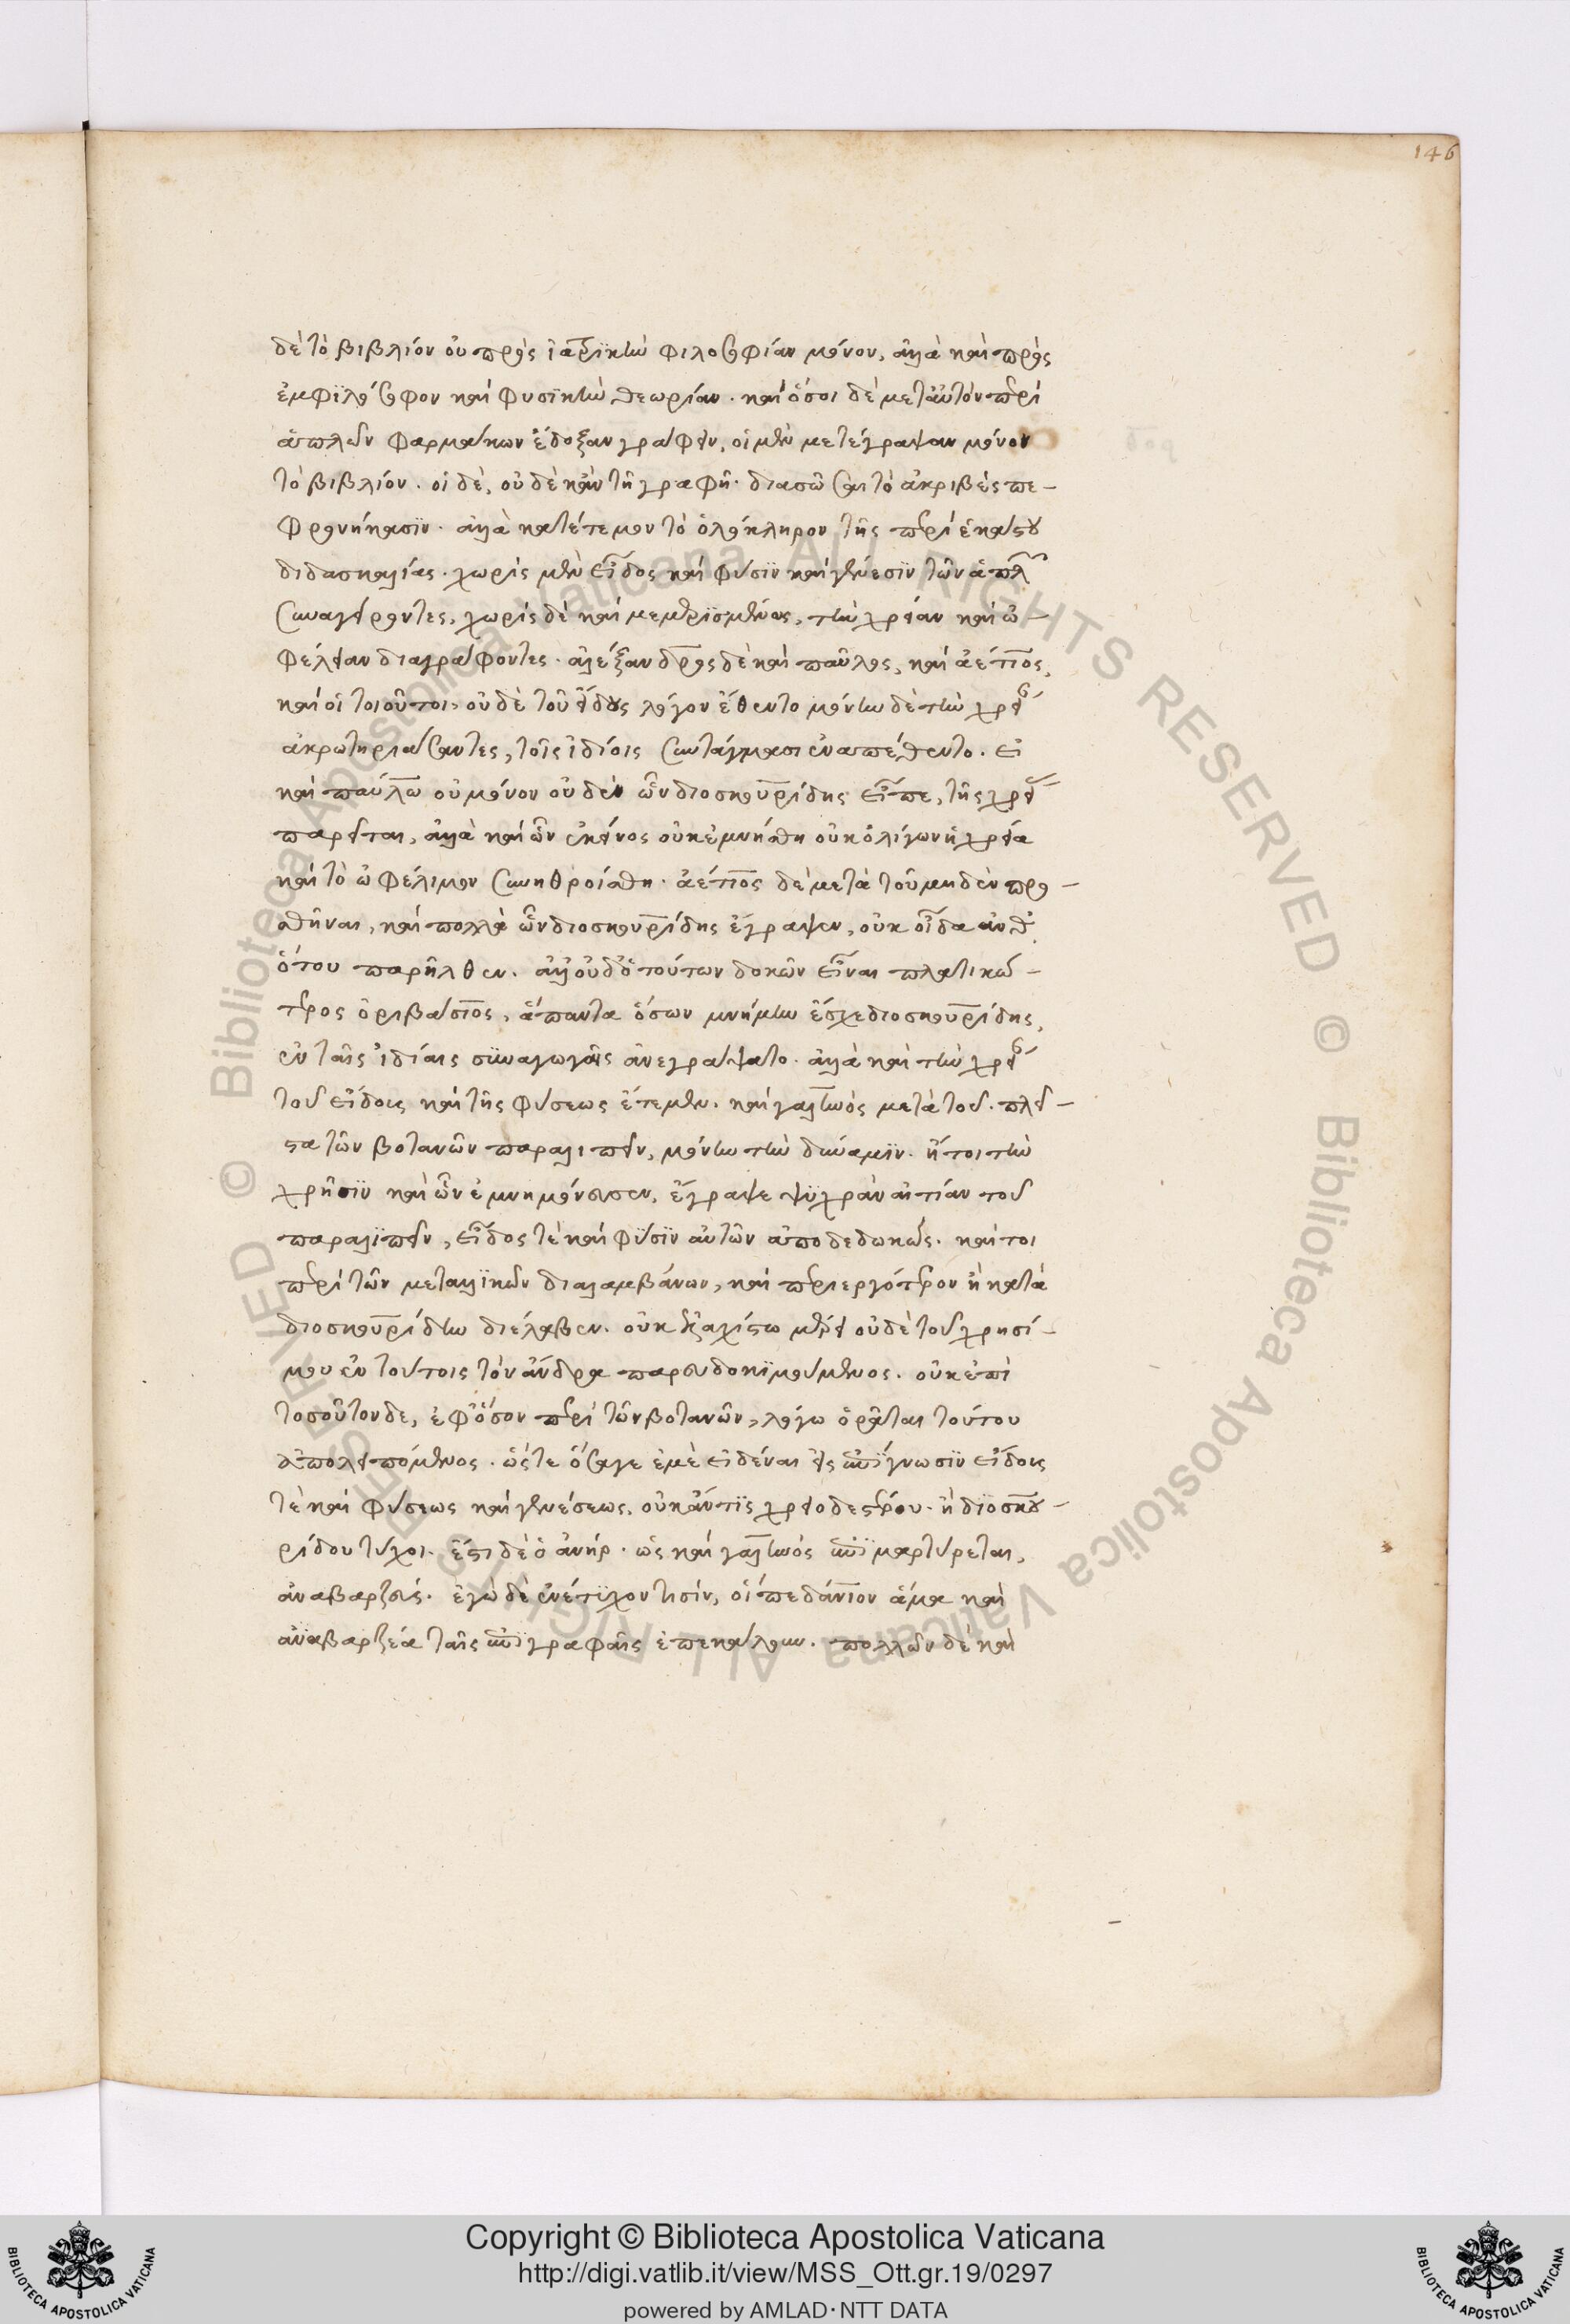 146
δὲ τὸ βιβλίον οὐ πρὸς ἰατρικὴν φιλοσοφίαν μόνον, ἀλλὰ καὶ πρὸς
ἐμφιλόσοφον καὶ φυσικὴν θεωρίαν. καὶ ὅσοι δὲ μετ αὐτὸν περὶ
ἁπλῶν φαρμάκων ἔδοξαν γράφειν, οἱ μὲν μετέγραψαν μόνον
τὸ βιβλίον. οἱ δὲ, οὐδὲ κἂν τῇ γραφῇ διασῶσαι τὸ ἀκριβὲς πε-
φρονήκασιν. ἀλλὰ κατέτεμον τὸ ὁλόκληρον τῆς περὶ ἑκάστου
διδασκαλίας. χωρὶς μὲν εἶδος καὶ φύσιν καὶ γένεσιν τῶν ἁπλ
συναγείροντες, χωρὶς δὲ καὶ μεμερισμένως, τὴν χρείαν καὶ ὠ-
φέλειαν διαγράφοντες. ἀλέξανδρος δὲ καὶ παῦλος, καὶ ἀέτιος,
καὶ οἱ τοιοῦτοι, οὐδὲ τοῦ εἴδους λόγον ἔθεντο μόνην δὲ τὴν χρεί
ἀκρωτηριάσαντες, τοῖς ἰδίοις συντάγμασι ἐναπέθεντο. εἰ
καὶ παύλω οὐ μόνον οὐδὲν ὧν διοσκουρίδης εἶπε, τῆς χρεί
παρεῖται, ἀλλὰ καὶ ὧν ἐκεῖνος οὐκ ἐμνήσθη οὐκ ὀλίγων ἡ χρεία
καὶ τὸ ὠφέλιμον συνηθροίσθη. ἀέτιος δὲ μετὰ τοῦ μηδὲν προ-
σθῆναι, καὶ πολλὰ ὧν διοσκουρίδης ἔγραψεν, οὐκ οἶδα ἀνθ
ὅτου παρῆλθεν. ἀλλ οὐδ ὁ τούτων δοκῶν εἶναι πλατικώ-
τερος ὀριβάσιος, ἅπαντα ὅσων μνήμην ἔσχε διοσκουρίδης,
ἐν ταῖς ἰδίαις συναγωγαῖς ἀνεγράψατο. ἀλλὰ καὶ τὴν χρεί
τοῦ εἴδους καὶ τῆς φύσεως ἔτεμεν. καὶ γαληνὸς μετὰ τοῦ πλεῖ-
στα τῶν βοτανῶν παραλιπεῖν, μόνην τὴν δύναμιν. ἤτοι τὴν
χρῆσιν καὶ ὧν ἐμνημόνευσεν, ἔγραψε ψυχρὰν αἰτίαν τοῦ
παραλιπεῖν, εἶδος τὲ καὶ φύσιν αὐτῶν ἀποδεδωκώς. καίτοι
περὶ τῶν μεταλλικῶν διαλαμβάνων, καὶ περιεργότερον ἢ κατὰ
διοσκουρίδην διέλαβεν. οὐκ ἐλαχίστω μέρει οὐδὲ τοῦ χρησί-
μου ἐν τούτοις τὸν ἄνδρα παρευδοκιμούμενος. οὐκ ἐπὶ
τοσοῦτον δε, ἐφ ὅσον περὶ τῶν βοτανῶν, λόγω ὁρᾶται τούτου
ἀπολειπόμενος. ὥστε ὅσα γε ἐμὲ εἰδέναι εἰς ἐπίγνωσιν εἴδους
τὲ καὶ φύσεως καὶ γενέσεως, οὐκ ἄν τις χρειοδεστέρου ἢ διοσκου-
ρίδου τύχοι. ἔστι δὲ ὁ ἀνήρ. ὡς καὶ γαληνὸς ἐπιμαρτύρεται,
ἀναβαρζεύς. ἐγὼ δὲ ἐνέτυχον τισίν, οἳ πεδάνιον ἅμα καὶ
ἀναβαρζέα ταῖς ἐπιγραφαῖς ἐπεκάλουν. πολλῶν δὲ καὶ
© Biblioteca Apostolica Vaticana ALL RIGHTS RESERVED © Biblioteca Apostolica Vaticana ALL RIGHTS RESERVED
Copyright © Biblioteca Apostolica Vaticana
http://digi.vatlib.it/view/MSS_Ott.gr.19/0297
powered by AMLAD·NTT DATA
BIBLIOTECA APOSTOLICA VATICANA
BIBLIOTECA APOSTOLICA VATICANA